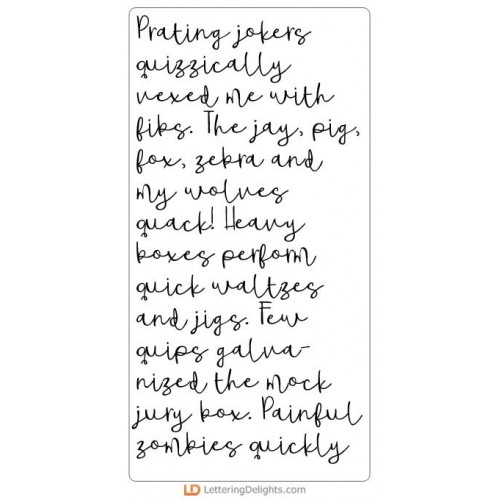 Prating jokers
quizzically
vexed me with
fibs. The jay, pig,
fox, zebra and
my wolves
quack! Heavy
boxes perform
quick waltzes
and jigs. Few
quips galva-
nized the mock
jury box. Painful
zombies quickly
LD LetteringDelights.com